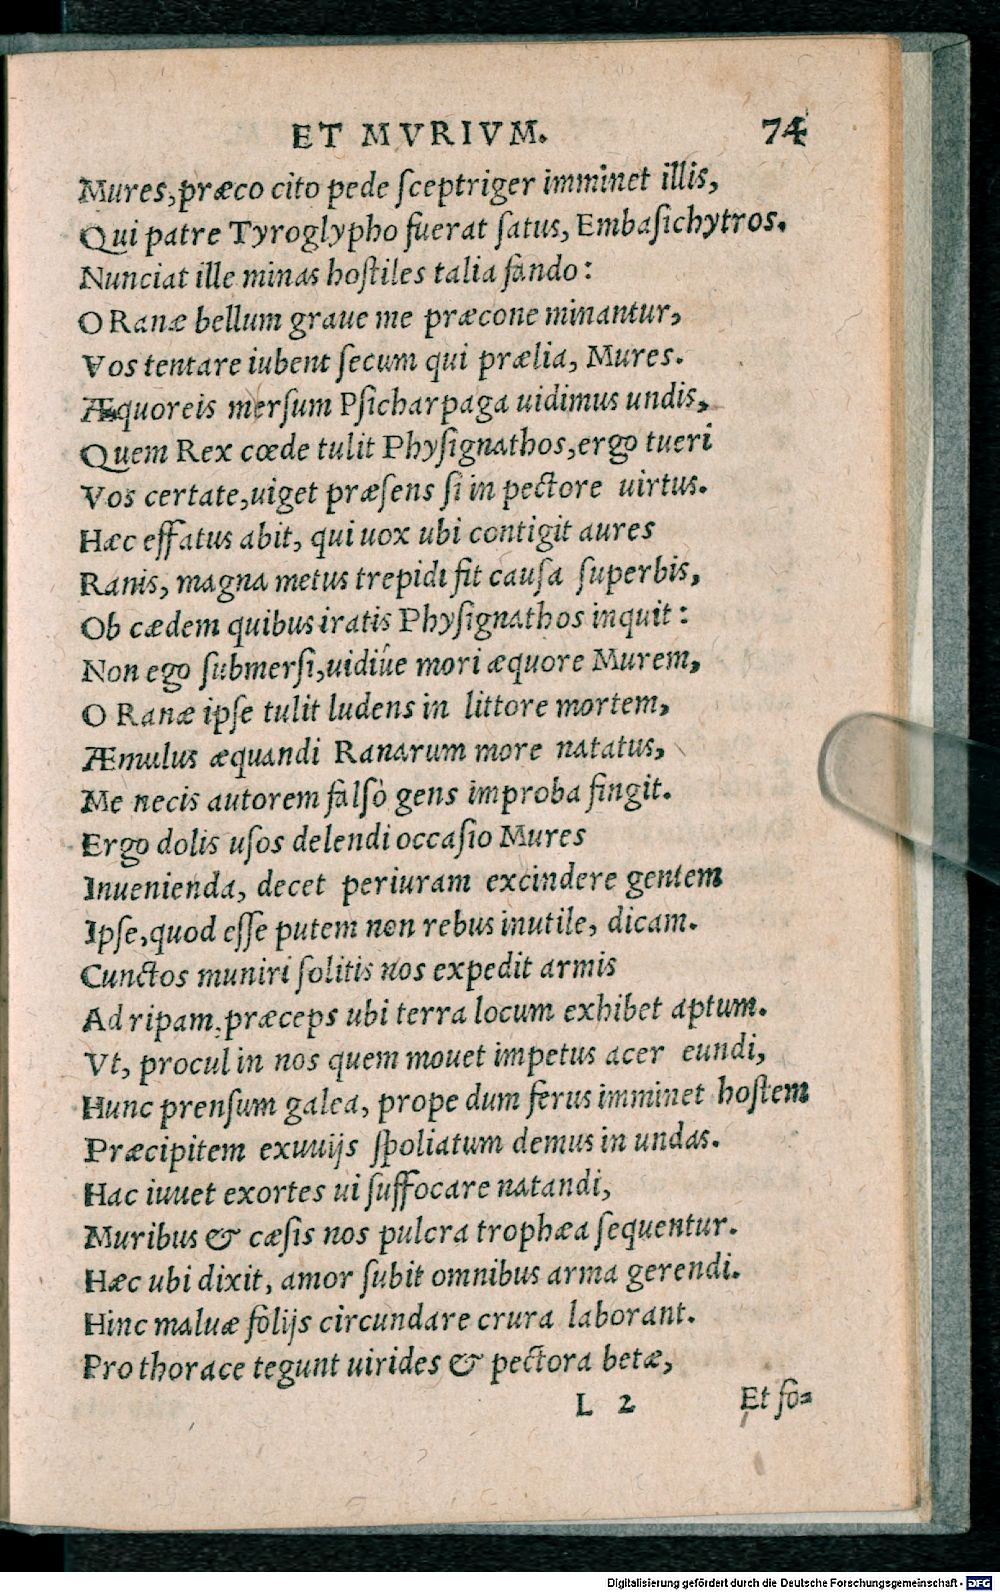 ET MVRIVM. 74
Mures, præco cito pede ſceptriger imminet illis,
Qui patre Tyroglypho fuerat ſatus, Embaſichytros.
Nunciat ille minas hoſtiles talia fando:
O Ranæ bellum graue me præcone minantur,
Vos tentare iubent ſecum qui prælia, Mures.
Æquoreis merſum Pſicharpaga uidimus undis,
Quem Rex cœde tulit Phyſignathos, ergo tueri
Vos certate, uiget præſens ſi in pectore uirtus.
Hæc effatus abit, qui uox ubi contigit aures
Ranis, magna metus trepidi fit cauſa ſuperbis,
Ob cædem quibus iratis Phyſignathos inquit:
Non ego ſubmerſi, uidiúe mori æquore Murem,
O Ranæ ipſe tulit ludens in littore mortem,
Æmulus æquandi Ranarum more natatus,
Me necis autorem falſò gens improba fingit.
Ergo dolis uſos delendi occaſio Mures
Inuenienda, decet periuram excindere gentem
Ipſe, quod eſſe putem non rebus inutile, dicam.
Cunctos muniri ſolitis nos expedit armis
Ad ripam, præceps ubi terra locum exhibet aptum.
Vt, procul in nos quem mouet impetus acer eundi,
Hunc prenſum galea, prope dum ferus imminet hoſtem
Præcipitem exuuijs ſpoliatum demus in undas.
Hac iuuet exortes ui ſuffocare natandi,
Muribus & cæſis nos pulcra trophæa ſequentur.
Hæc ubi dixit, amor ſubit omnibus arma gerendi.
Hinc maluæ folijs circundare crura laborant.
Pro thorace tegunt uirides & pectora betæ,
L 2 Et fo=
Digitalisierung gefördert durch die Deutsche Forschungsgemeinschaft - DFG